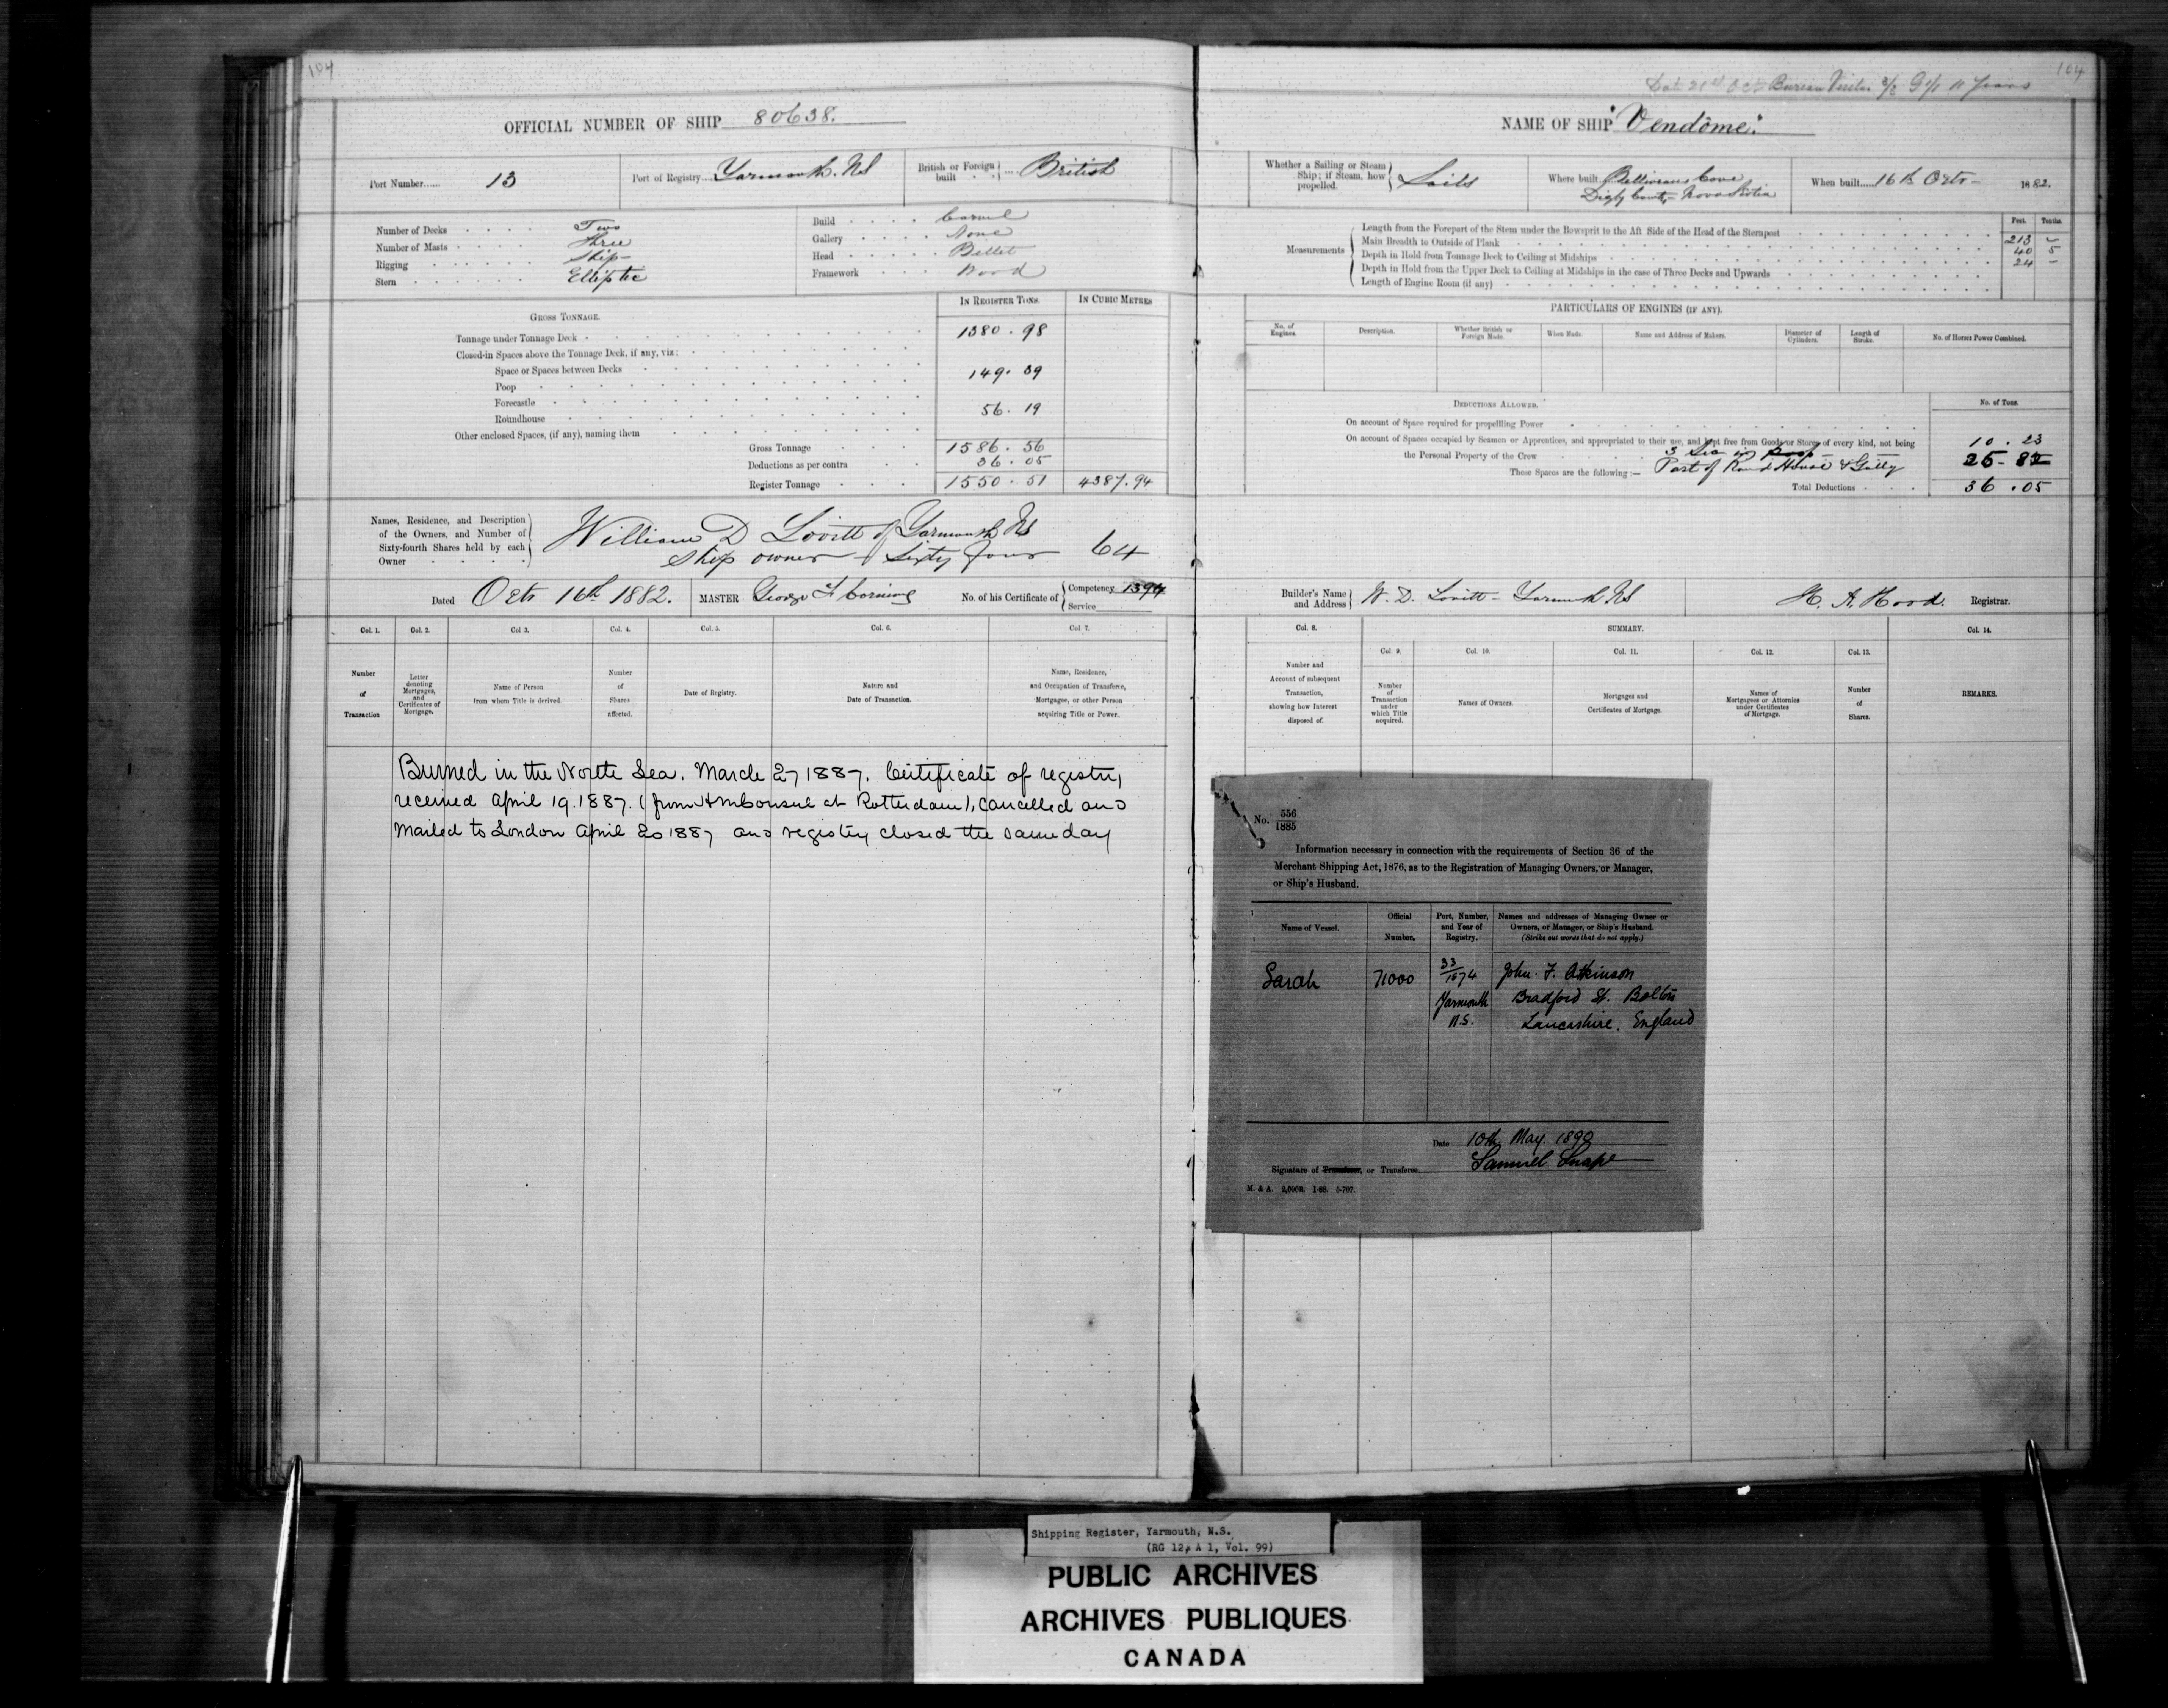 104
OFFICIAL NUMBER OF SHIP 80638.
Port Number...... 13
Port of Registry.... Yarmouth. NS
British or Foreign built .... British
Number of Decks Two
Number of Masts Three
Rigging Ship
Stern Elliptic
Build Carvel
Gallery None
Head Billet
Framework Wood
IN REGISTER TONS. IN CUBIC METRES
GROSS TONNAGE.
Tonnage under Tonnage Deck 1380.98
Closed-in Spaces above the Tonnage Deck, if any, viz:
Space or Spaces between Decks
Poop 149.39
Forecastle
Roundhouse 56.19
Other enclosed Spaces, (if any), naming them
Gross Tonnage 1586.56
Deductions as per contra 36.05
Register Tonnage 1550.51 4387.94
Names, Residence, and Description
of the Owners, and Number of
Sixty-fourth Shares held by each
Owner
William D Lovitt of Yarmouth NS
Ship owner Sixty four 64
Dated Octr 16th 1882. MASTER George F Corning No. of his Certificate of Competency 1394
Service
Col. 1. Col. 2. Col 3. Col. 4. Col. 5. Col. 6. Col. 7.
Number of Transaction
Letter denoting Mortgages, and Certificates of Mortgage.
Name of Person from whom Title is derived.
Number of Shares affected.
Date of Registry.
Nature and Date of Transaction.
Name, Residence, and Occupation of Transferee, Mortgagee, or other Person acquiring Title or Power.
Burned in the North Sea. March 27 1887. Certificate of registry
received April 19. 1887. (from HMConsul at Rotterdam), cancelled and
mailed to London April 20 1887 and registry closed the same day
104
NAME OF SHIP "Vendôme".
Whether a Sailing or Steam Ship; if Steam, how propelled. Sails
Where built Belliveaus Cove
Digby County Nova Scotia
When built...... 16th Octr 1882.
Feet. Tenths.
Measurements
Length from the Forepart of the Stem under the Bowsprit to the Aft Side of the Head of the Sternpost 213 -
Main Breadth to Outside of Plank 40 5
Depth in Hold from Tonnage Deck to Ceiling at Midships 24 -
Depth in Hold from the Upper Deck to Ceiling at Midships in the case of Three Decks and Upwards
Length of Engine Room (if any)
PARTICULARS OF ENGINES (IF ANY).
No. of Engines. Description. Whether British or Foreign Made. When Made. Name and Address of Makers. Diameter of Cylinders. Length of Stroke. No. of Horses Power Combined.
DEDUCTIONS ALLOWED. No. of Tons.
On account of Space required for propelling Power
On account of Spaces occupied by Seamen or Apprentices, and appropriated to their use, and kept free from Goods or Stores of every kind, not being
the Personal Property of the Crew 10.23
These Spaces are the following:— Part of Round House & Gally 25-82
Total Deductions 36.05
Builder's Name and Address W. D. Lovitt - Yarmouth NS
H. A. Hood. Registrar.
Col. 8. SUMMARY. Col. 14.
Col. 9. Col. 10. Col. 11. Col. 12. Col. 13.
Number and Account of subsequent Transaction, showing how Interest disposed of.
Number of Transaction under which Title acquired.
Names of Owners.
Mortgages and Certificates of Mortgage.
Names of Mortgagees or Attornies under Certificates of Mortgage.
Number of Shares.
REMARKS.
No. 556/1885
Information necessary in connection with the requirements of Section 36 of the
Merchant Shipping Act, 1876, as to the Registration of Managing Owners, or Manager,
or Ship's Husband.
Name of Vessel. Official Number. Port, Number, and Year of Registry. Names and addresses of Managing Owner or Owners, or Manager, or Ship's Husband.
(Strike out words that do not apply.)
Sarah 71000 33/1874 John F. Atkinson
Yarmouth Bradford St. Bolton
N.S. Lancashire. England
Date 10th May. 1890
Signature of Transferor, or Transferee Samuel Snape
M. & A. 2,000R. 1-88. 5-707.
Shipping Register, Yarmouth, N.S.
(RG 12, A 1, Vol. 99)
PUBLIC ARCHIVES
ARCHIVES PUBLIQUES
CANADA